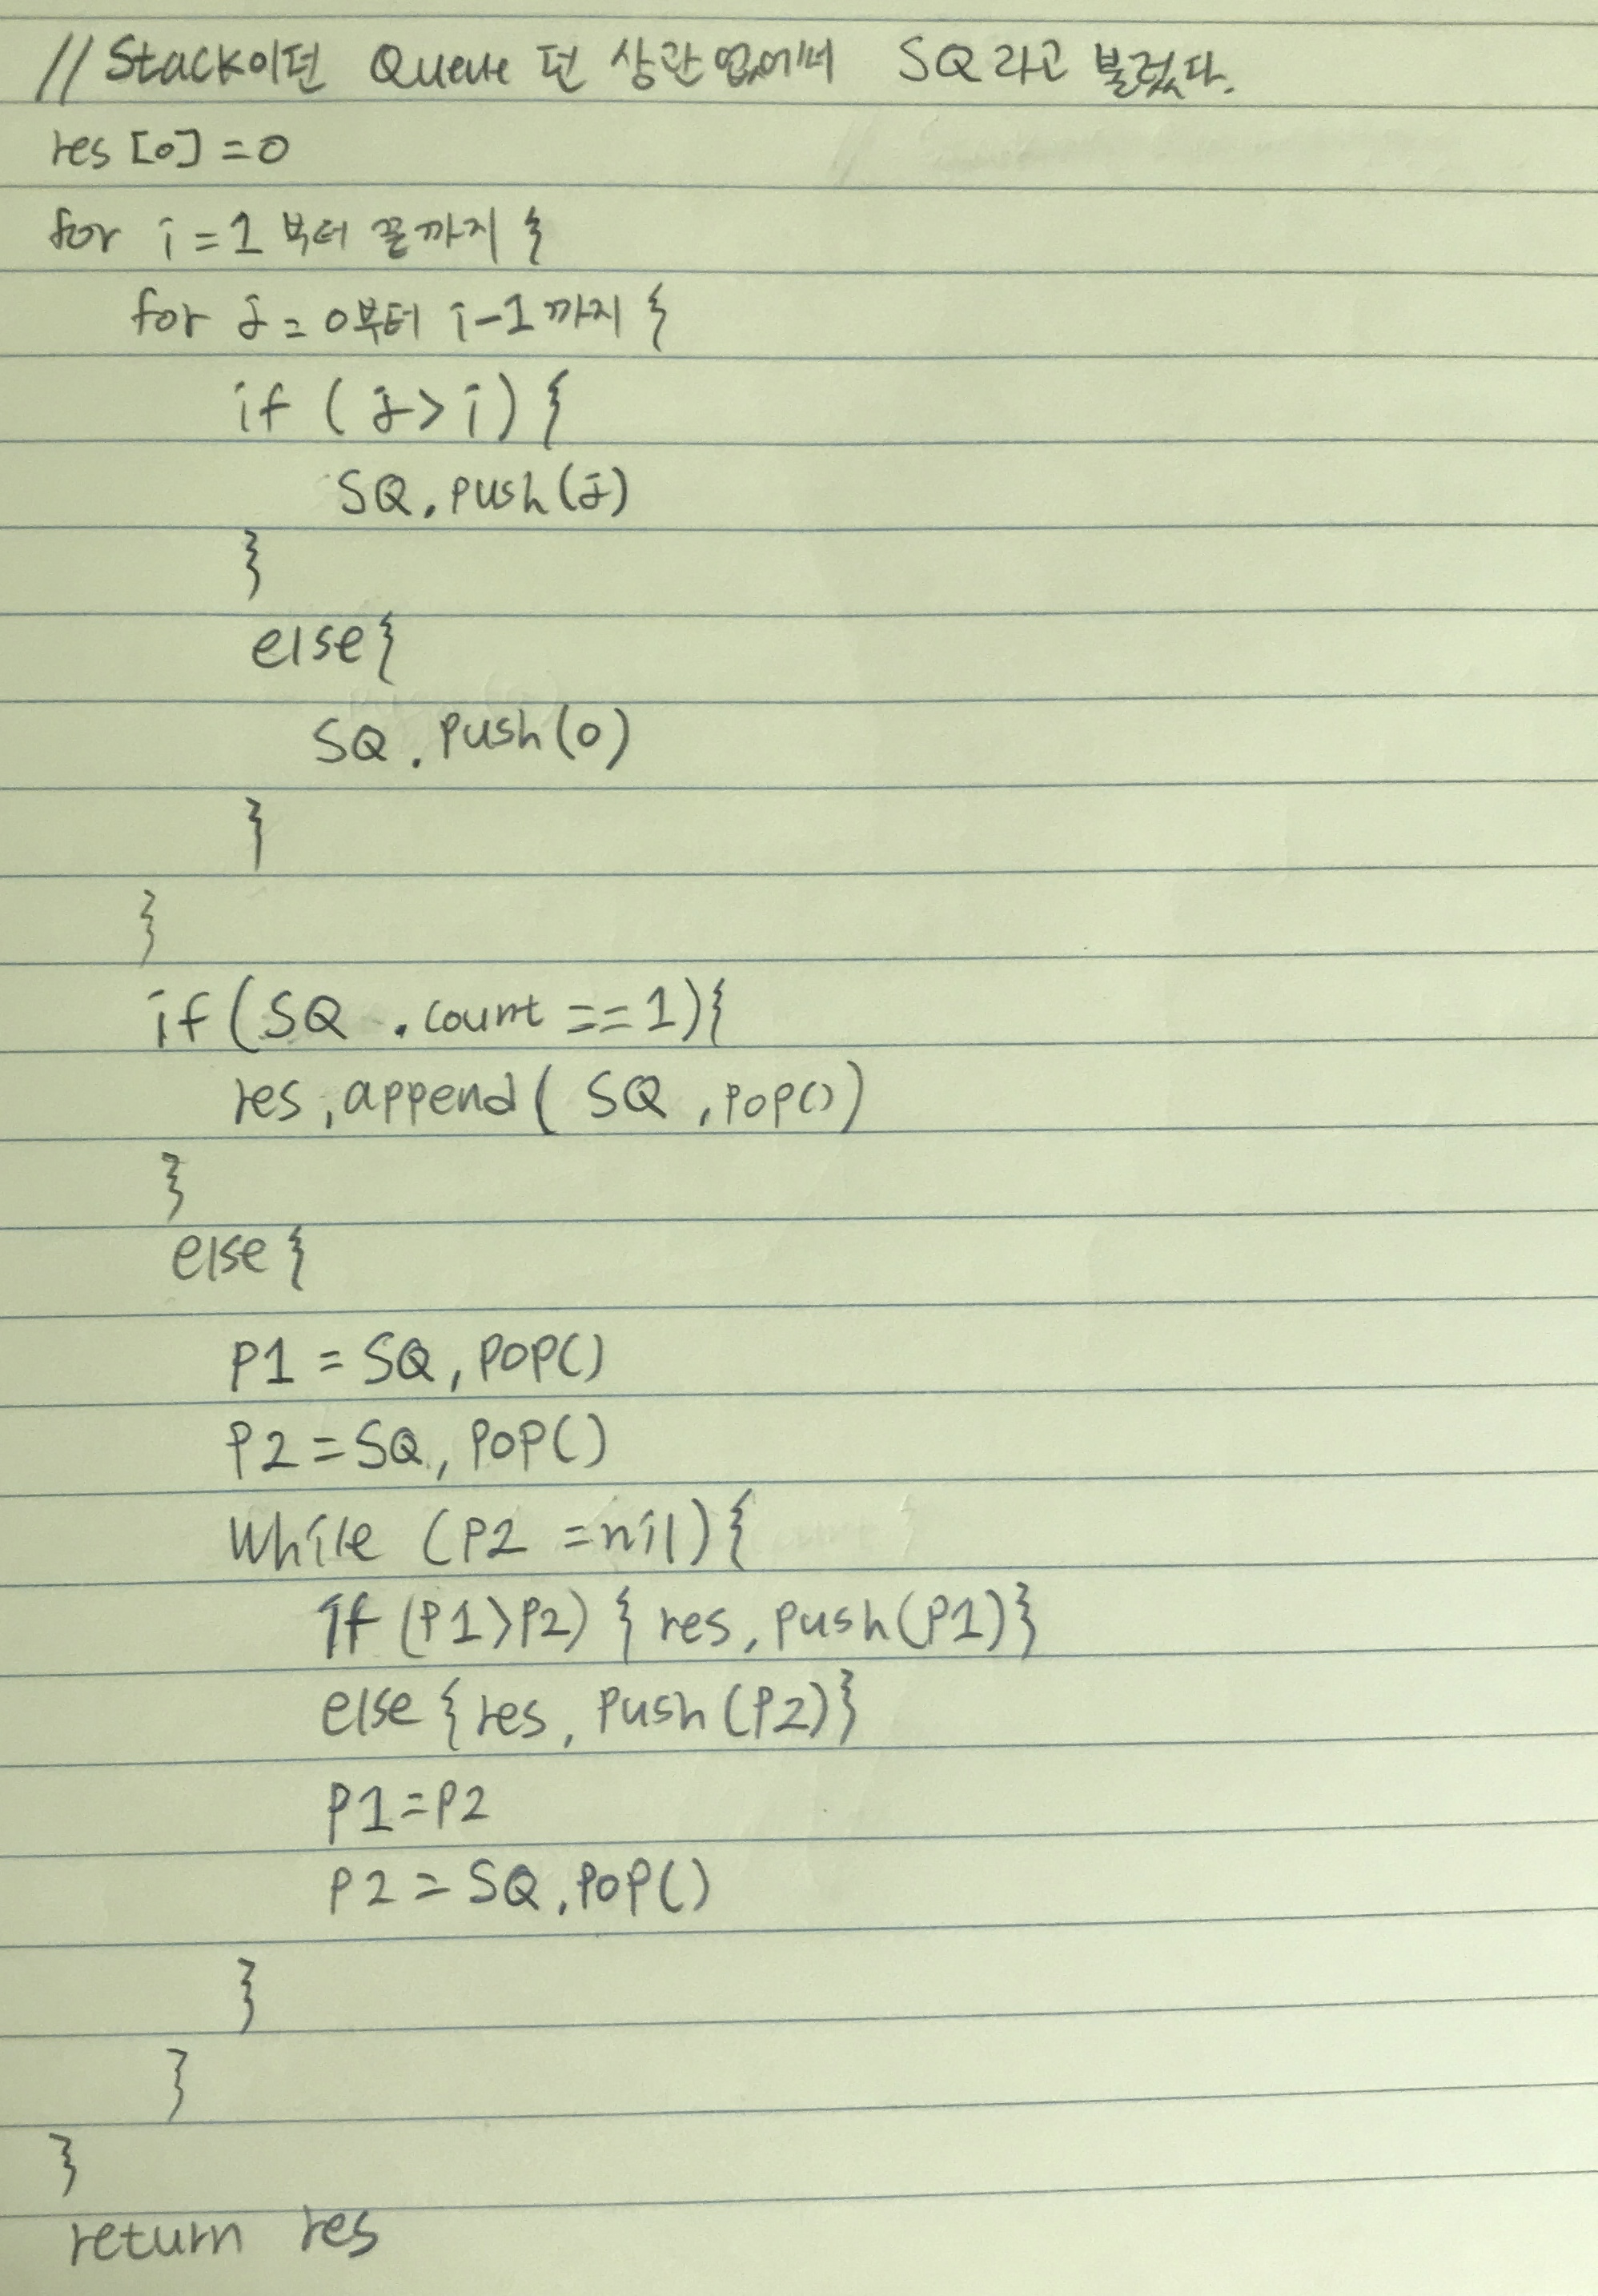 // Stack이던 Queue던 상관 없에서 SQ라고 불렀다.
res [0] = 0
for i = 1 부터 끝까지 {
for j = 0부터 i-1까지 {
if ( j > i ) {
SQ. push (j)
}
else {
SQ. push (0)
}
}
if (SQ .count == 1) {
res, append ( SQ , pop())
}
else {
P1 = SQ, POP()
P2 = SQ, POP()
While (P2 = nil) {
if (P1>P2) { res, push (P1)}
else { res, push (P2)}
P1 = P2
P2 = SQ, POP()
}
}
}
return res